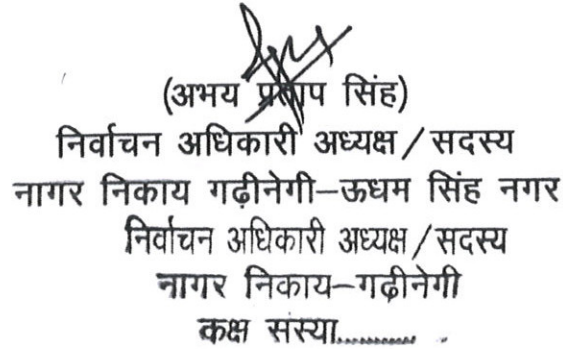 (अभय प्रताप सिंह)
निर्वाचन अधिकारी अध्यक्ष/सदस्य
नागर निकाय गढ़ीनेगी–ऊधम सिंह नगर
निर्वाचन अधिकारी अध्यक्ष/सदस्य
नागर निकाय–गढ़ीनेगी
कक्ष संस्या............